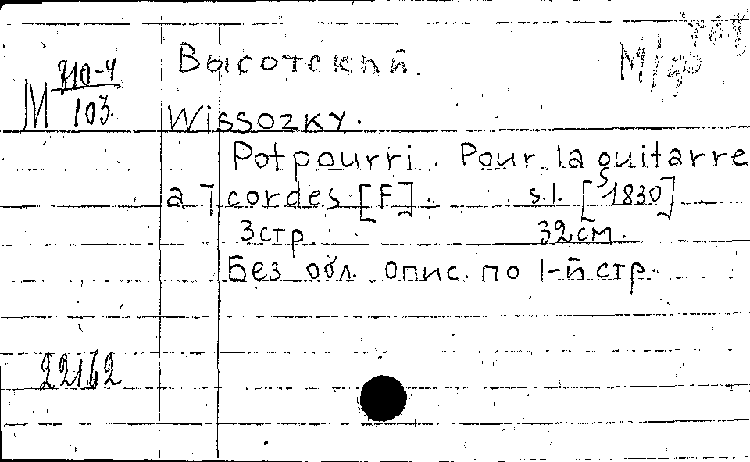 Высоткий.
М 710-4
103
WISSOZKY.
Potpourri. Pour la guitarre
a 7 cordes [F]. s.l. [1830]
3стр. 32см.
Без обл. опис. по 1-й стр.
22162